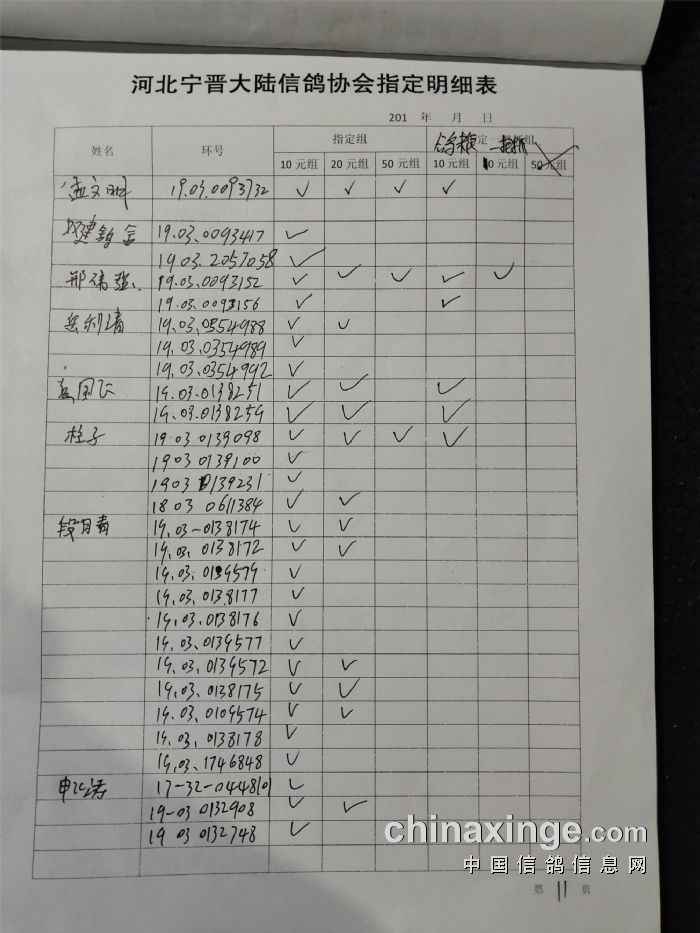 河北宁晋大陆信鸽协会指定明细表
201 年 月 日
姓名 环号 指定组 鸽粮
10元组 20元组 50元组 10元组 10元组 50元组
孟文明 19.03.0093732 ✓ ✓ ✓ ✓
19.03.0093417 ✓
19.03.2057058 ✓
邢伟强 19.03.0093152 ✓ ✓ ✓ ✓ ✓
19.03.0093156 ✓ ✓
19.03.0354988 ✓ ✓
19.03.0354989 ✓
19.03.0354992 ✓
19.03.0138251 ✓ ✓ ✓
19.03.0138259 ✓ ✓ ✓
柱子 19.03 0139098 ✓ ✓ ✓ ✓
1903 0139100 ✓
1903 0139231 ✓
1803 0611384 ✓ ✓
19.03-0138174 ✓ ✓
19.03. 0138172 ✓ ✓
19.03.0139579 ✓
19.03.0138177 ✓
19.03.0138176 ✓
19.03.0139577 ✓
19.03.0139572 ✓ ✓
19.03.0138175 ✓ ✓
19.03.0109574 ✓ ✓
19.03.0138178 ✓
19.03.1746848 ✓
17-32-0448101 ✓
19-03 0132908 ✓ ✓
19 03 0132748 ✓
chinaxinge.com
中国信鸽信息网
第 11 页